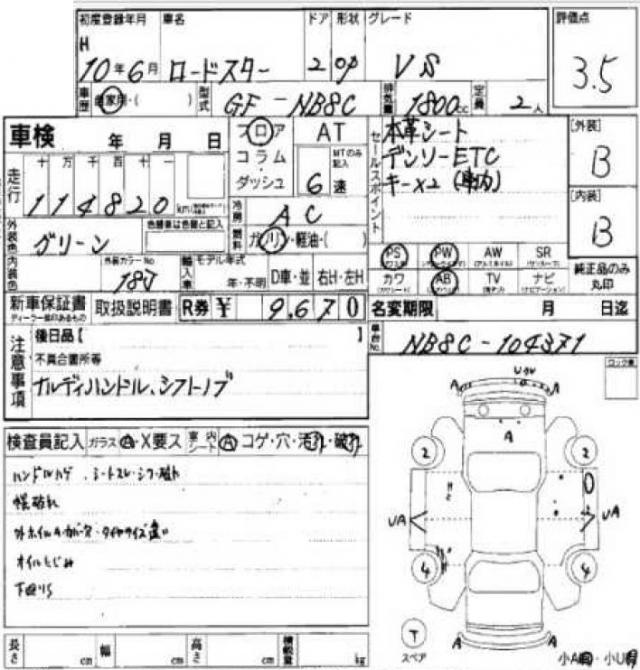 初度登録年月 車名 ドア 形状 グレード 評価点
H
10年6月 ロードスター 2 OP VS 3.5
車歴 自家用・( ) 型式 GF-NB8C 排気量 1800cc 定員 2人
車検 年 月 日 フロア AT セールスポイント 本革シート [外装]
走行 十 万 千 百 十 一 コラム・ MTのみ記入 デンソーETC B
114820 km ダッシュ 6速 キー×2
冷房 AC [内装]
外装色 グリーン 色替車は色番と記入 燃料 ガソリン・軽油・( ) B
PS PW AW SR
内装色 外装カラーNo 18J 輸入車 モデル年式 年・不明 D車・並 右H・左H カワ AB TV ナビ 純正品のみ丸印
新車保証書 取扱説明書 R券 ¥ 9,670 名変期限 月 日迄
ディーラー捺印あるもの
注意事項 後日品【 】 車台No. NB8C-104371
不具合箇所等
ナルディハンドル、シフトノブ
検査員記入 ガラス A・X要ス 室内シート A コゲ・穴・汚れ・破れ
ハンドルハゲ、シートスレ・シワ・破れ
幌破れ
タイヤサイズ違い
オイルにじみ
下廻りS
A A
A
2 2
UA UA
4 4
A A
T
スペア
長さ cm 幅 cm 高さ cm 積載量 kg